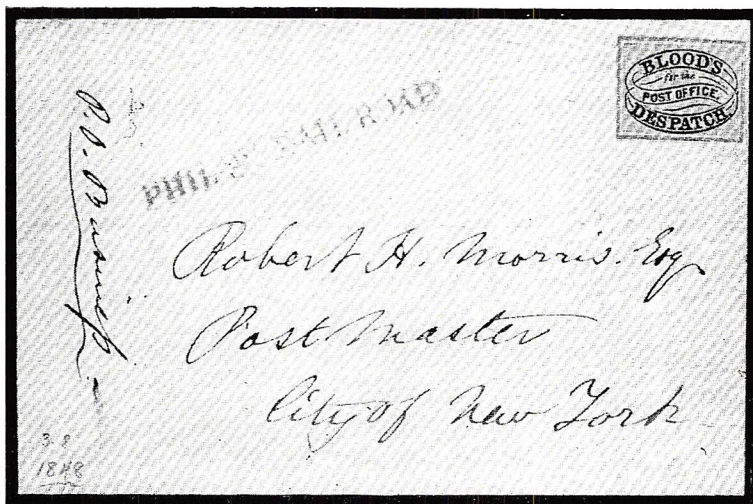 BLOOD'S
for the
POST OFFICE.
DESPATCH.
RAILROAD
P. O. Business
Robert H. Morris. Esq
Post Master
City of New York
1848